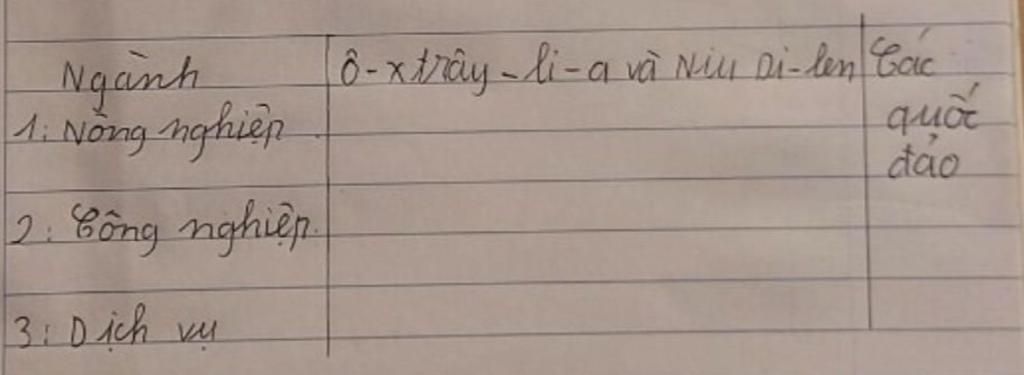 Ngành Ô-xtrây-li-a và Niu Di-len Các
1: Nông nghiệp quốc
đảo
2: Công nghiệp.
3: Dịch vụ